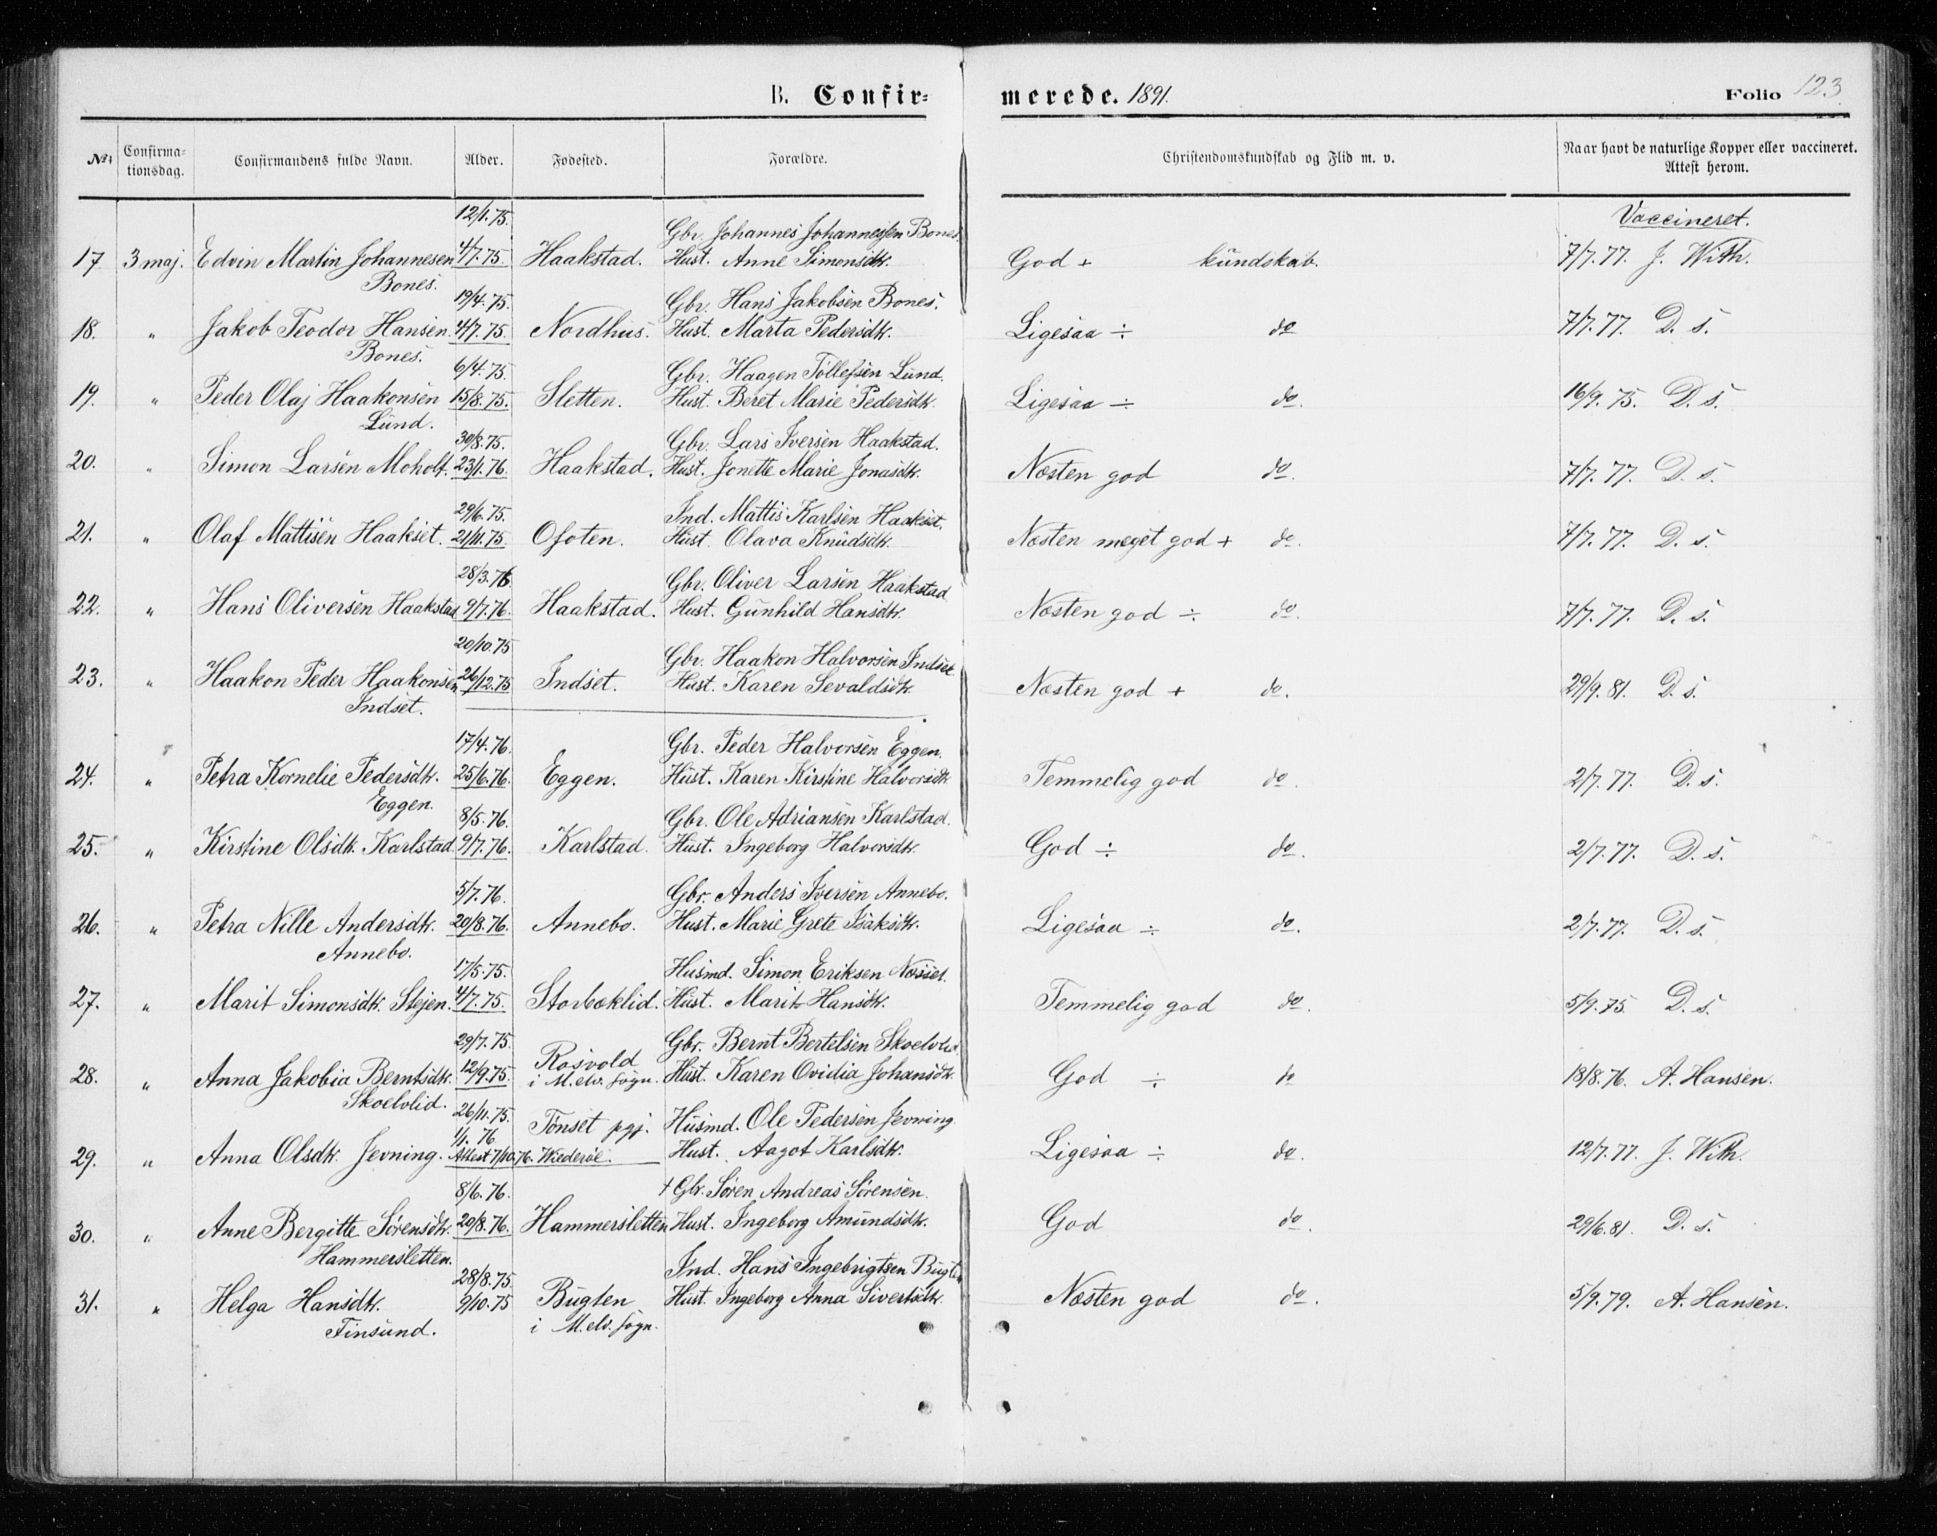 B. Confir= merede. 1891. Folio 123
No. Confirma=tionsdag. Confirmandens fulde Navn. Alder. Fødested. Forældre. Christendomskundskab og Flid m. v. Naar havt de naturlige Kopper eller vaccineret. Attest herom.
12/1.75. Gbr. Johannes Johannessen Bones Vaccineret.
17 3 maj. Edvin Martin Johannesen 4/7.75. Haakstad. Hust. Anne Simonsdtr. God + kundskab. 7/7.77. J. With.
Bones.
19/4.75. Gbr. Hans Jakobsen Bones.
18. " Jakob Teodor Hansen 4/7.75. Nordhus. Hust. Marta Pedersdtr. Ligesaa ÷ do 7/7.77. D. s.
Bones.
6/4.75. Gbr. Haagen Tollefsen Lund.
19. " Peder Olaj Haakonsen 15/8.75. Sletten. Hust. Beret Marie Pedersdtr. Ligesaa ÷ do. 16/9.75. D. s.
Lund.
30/8.75. Gbr. Lars Iversen Haakstad.
20. " Simon Larsen Moholt. 23/1.76. Haakstad. Hust. Jonette Marie Jonasdtr. Næsten god do. 7/7.77. D. s.
29/6.75. Ind. Mattis Karlsen Haakset.
21. " Olaf Mattisen Haakset. 21/11.75. Ofoten. Hust. Olava Knudsdtr. Næsten meget god + do. 7/7.77. D. s.
28/3.76 Gbr. Oliver Larsen Haakstad
22. " Hans Oliversen Haakstad 9/7.76. Haakstad. Hust. Gunhild Hansdtr. Næsten god ÷ do. 7/7.77. D. s.
20/10.75 Gbr. Haakon Halvorsen Indset
23. " Haakon Peder Haakonsen 26/12.75 Indset. Hust. Karen Sevaldsdtr. Næsten god + do. 29/9.81. D. s.
Indset.
17/4.76. Gbr. Peder Halvorsen Eggen.
24. " Petra Kornelie Pedersdtr. 25/6.76. Eggen. Hust. Karen Kirstine Halvorsdtr. Temmelig god do. 2/7.77. D. s.
Eggen.
8/5.76. Gbr. Ole Adriansen Karlstad.
25. " Kirstine Olsdtr. Karlstad 9/7.76. Karlstad. Hust. Ingeborg Halvorsdtr. God ÷ do. 2/7.77. D. s.
5/7.76. Gbr. Anders Iversen Annebo.
26. " Petra Nille Andersdtr. 20/8.76. Annebo. Hust. Marie Grete Isaksdtr. Ligesaa ÷ do. 2/7.77. D. s.
Annebo.
17/5.75. Husmd. Simon Eriksen Næsset.
27. " Marit Simonsdtr. Stejen. 4/7.75. Storbæklid. Hust. Marit Hansdtr. Temmelig god do. 5/9.75. D. s.
29/7.75. Gbr. Bernt Bertelsen Skoelvlid
28. " Anna Jakobia Berntsdtr. 12/9.75. Rosvold i M.elv. sogn. Hust. Karen Ovidia Johansdtr. God ÷ do 18/8.76. A. Hansen.
Skoelvlid.
26/11.75. Tönset pgj. Husmd. Ole Pedersen Jevning
1/1.76
29. " Anna Olsdtr. Jevning. Attest 7/10.76. Wederøe. Hust. Aagot Karlsdtr. Ligesaa ÷ do. 12/7.77. J. With.
8/6.76. + Gbr. Søren Andreas Sørensen.
30. " Anne Bergitte Sørensdtr. 20/8.76. Hammersletten Hust. Ingeborg Amundsdtr. God do. 29/6.81. D. s.
Hammersletten.
28/8.75. Ind. Hans Ingebrigtsen Bugten
31. " Helga Hansdtr. 9/10.75 Bugten Hust. Ingeborg Anna Sivertsdtr. Næsten god do. 5/9.79. A. Hansen.
Finsund. i M.elv. sogn.